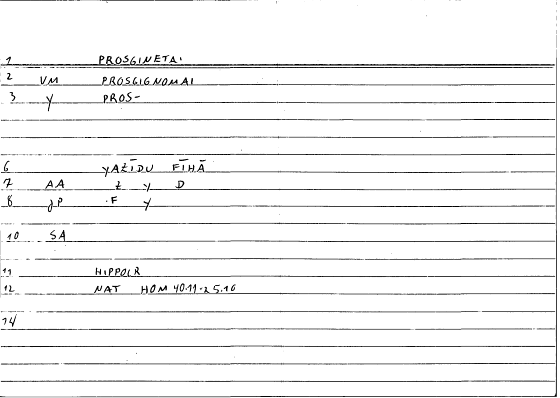 1 PROSGINETAI
2 VM PROSGIGNOMAI
3 Y PROS-
6 YAZĪDU FĪHĀ
7 AA Z Y D
8 JP F Y
10 SA
11 HIPPOCR
12 NAT HOM 40.11-25.16
14